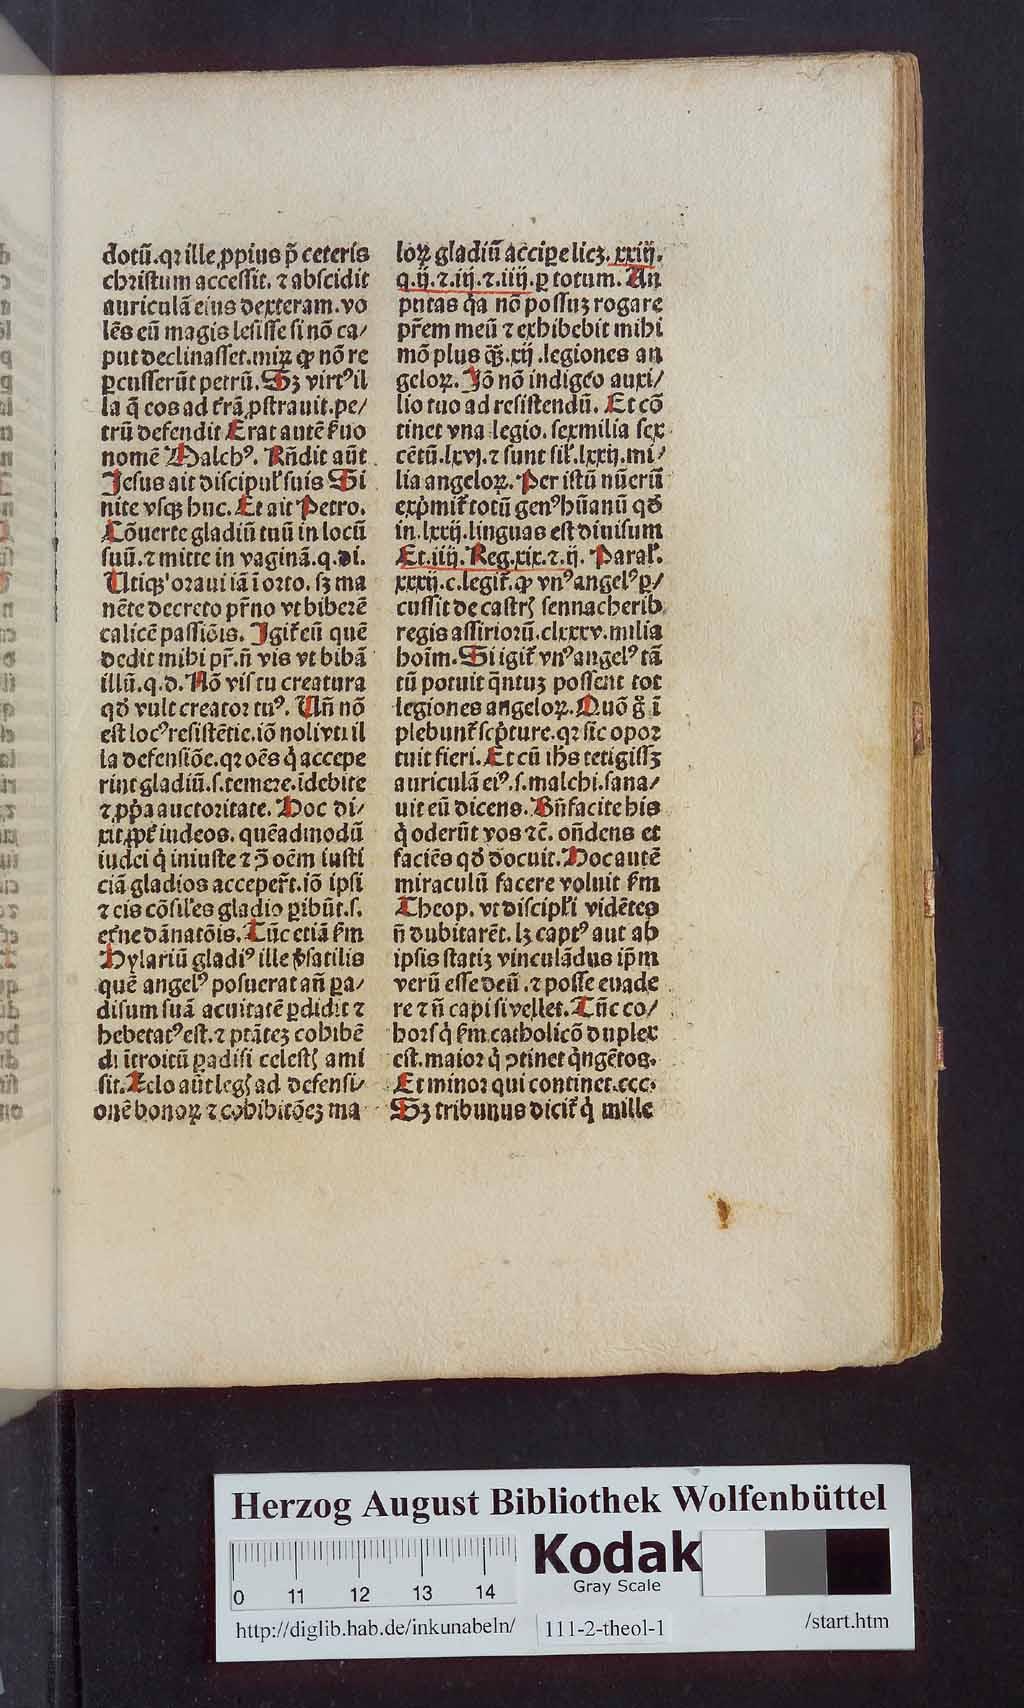 dotū.qꝛ ille ꝓpius p̄ ceteris
chꝛistum accessit. ⁊ abscidit
auriculā eius dexteram. vo
lēs eū magis lesisse si nō ca/
put declinasset. miꝝ ꝙ nō re
ꝑcusserūt petrū. Sꝫ virtꝰ il
la q̄ eos ad t̄rā ꝓstrauit. pe/
trū defendit Erat autē ẜuo
nomē Malchꝰ. Rn̄dit aūt
Jesus ait discipul̓ suis Si
nite vsqꝫ huc. Et ait Petro.
Cōuerte gladiū tuū in locū
suū. ⁊ mitte in vaginā. q. di.
Utiqꝫ oraui iā ī oꝛto. sꝫ ma
nēte decreto pr̄no vt biberē
calicē passiōis. Igit̓ eū quē
dedit mihi pr̄. n̄ vis vt bibā
illū. q. d. Nō vis tu creatura
qd̓ vult creatoꝛ tuꝰ. Un̄ nō
est locꝰ resistētie. iō noli vti il
la defensiōe. qꝛ oēs q̇ accepe
rint gladiū. s. temere. īdebite
⁊ ꝓpꝛia auctoꝛitate. Hoc di/
xit ꝓpt̓ iudeos. quēadmodū
iudei q̇ iniuste ⁊ ꝯ oēm iusti
ciā gladios acceper̄t. iō ipsi
⁊ eis cōsiles gladio ꝑibūt. s.
et̓ne dānatōis. Tūc etiā ẜm
Hylariū gladiꝰ ille v̓satilis
quē angelꝰ posuerat an̄ ꝑa/
disum suā acuitatē ꝑdidit ⁊
hebetatꝰ est. ⁊ ptāteꝫ cohibē
di ītroitū ꝑadisi celestꝭ ami
sit. Zelo aūt legꝭ ad defensi/
onē bonoꝝ ⁊ cohibitōeꝫ ma
loꝝ gladiū accipe licꝫ. xxiij.
q. ij. ⁊. iij. ⁊. iiij. ꝑ totum. An
putas q̇a nō possuꝫ rogare
pr̄em meū ⁊ exhibebit mihi
mō plus q̄ꝫ. xij. legiones an
geloꝝ. Jō nō indigeo auxi/
lio tuo ad resistendū. Et cō
tinet vna legio. sexmilia sex
cētū. lxvj. ⁊ sunt sil̓. lxxij. mi/
lia angeloꝝ. Per istū nūerū
exp̓mit̓ totū genꝰ hūanū qd̓
in. lxxij. linguas est diuisum
Et. iiij. Reg. xix. ⁊. ij. Paral̓.
xxxij. c. legit̓. ꝙ vnꝰ angelꝰ ꝑ/
cussit de castrꝭ sennacherib
regis assirioꝛū. clxxxv. milia
hoīm. Si igit̓ vnꝰ angelꝰ tā
tū potuit q̄ntuꝫ possent tot
legiones angeloꝝ. Quō g̊ ī
plebunt̓ sc̓pture. qꝛ sic opoꝛ
tuit fieri. Et cū ih̄s tetigissꝫ
auriculā eiꝰ. s. malchi. sana/
uit eū dicens. Bn̄facite his
q̇ oderūt vos ⁊c̄. on̄dens et
faciēs qd̓ docuit. Hoc autē
miraculū facere voluit ẜm
Theop. vt discipl̓i vidētes
n̄ dubitarēt. lꝫ captꝰ aut ab
ipsis statiꝫ vinculādus ip̄m
verū esse deū. ⁊ posse euade
re ⁊ n̄ capi si vellet. Tūc co/
hoꝛs q̇ ẜm catholicō duplex
est. maioꝛ q̇ ꝯtinet q̇ngētos.
Et minoꝛ qui continet. ccc.
Sꝫ tribunus dicit̓ q̇ mille
Herzog August Bibliothek Wolfenbüttel
0 11 12 13 14
Kodak
Gray Scale
http://diglib.hab.de/inkunabeln/ 111-2-theol-1 /start.htm